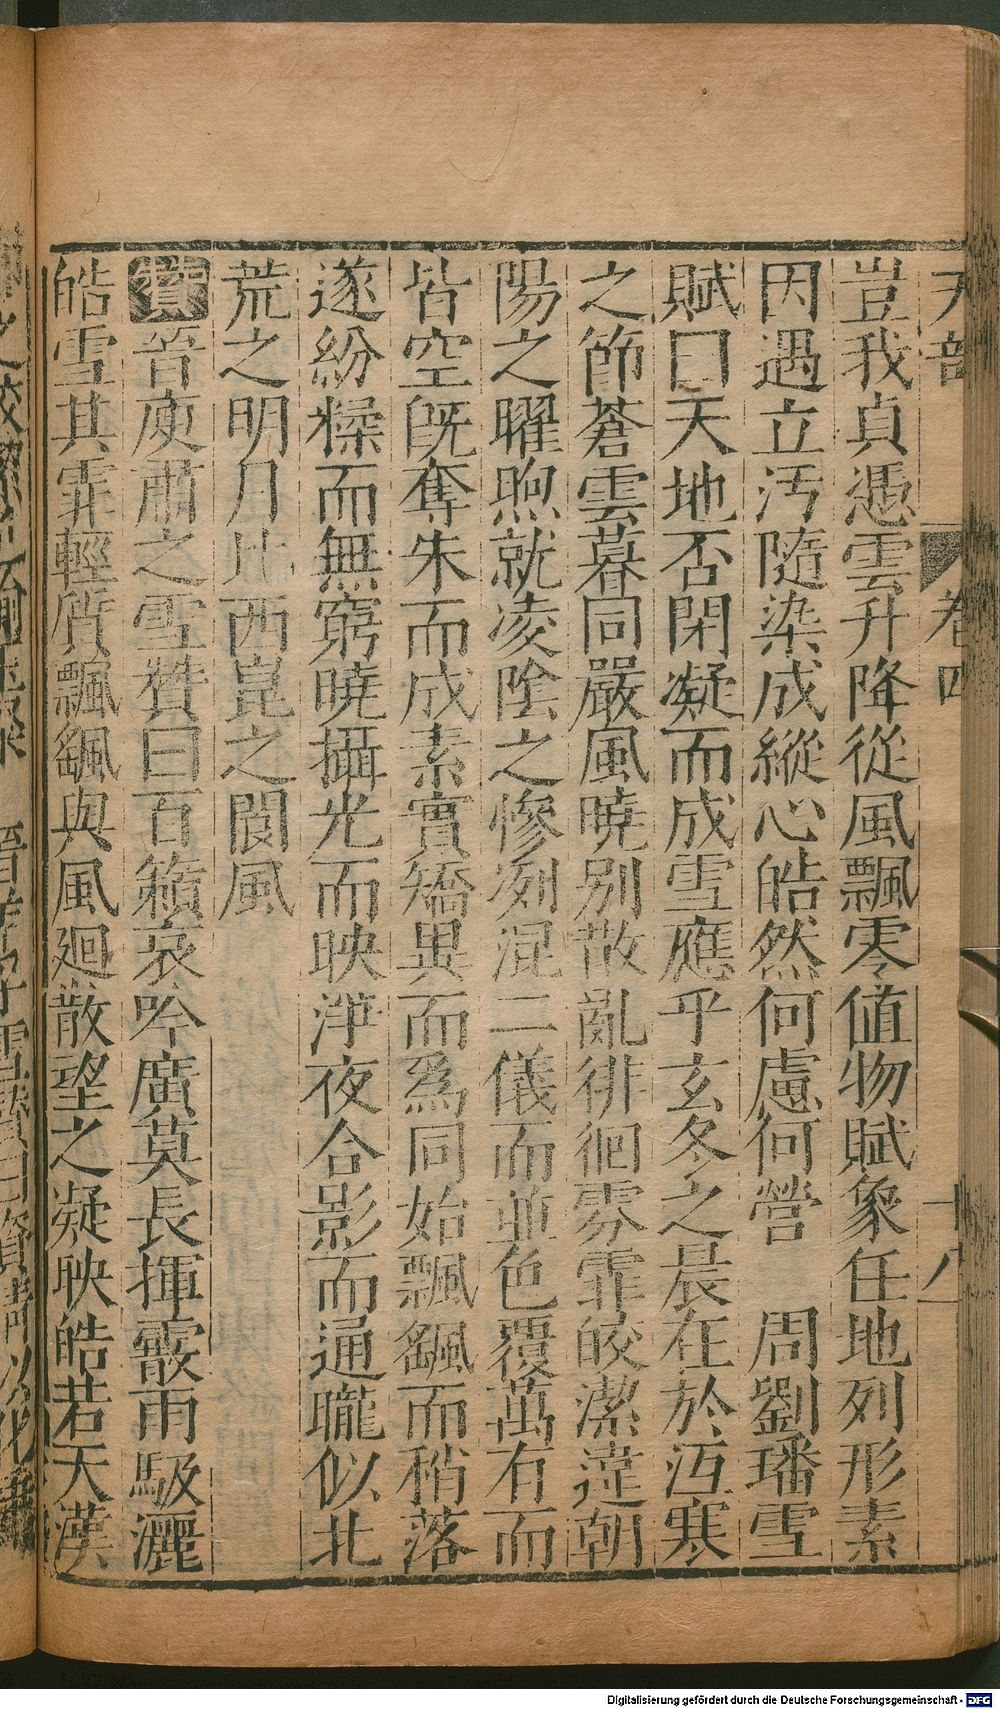 天部
卷四
十八
豈我貞憑雲升降從風飄零值物賦象任地列形素
因遇立汚隨染成縱心皓然何慮何營 周劉璠雪
賦曰天地否閉凝而成雪應乎玄冬之晨在於沍寒
之節蒼雲暮同嚴風曉别散亂徘徊雰霏皎潔違朝
陽之曜煦就凌陰之慘冽混二儀而並色覆萬有而
皆空旣奪朱而成素實矯異而爲同始飄颻而稍落
遂紛糅而無窮曉攝光而映淨夜合影而通朧似北
荒之明月比西崑之閬風
贊晉庾肅之雪贊曰百籟哀吟廣莫長揮霰雨駁灑
皓雪其霏輕質飄颻與風廻散望之凝映皓若天漢
Digitalisierung gefördert durch die Deutsche Forschungsgemeinschaft - DFG